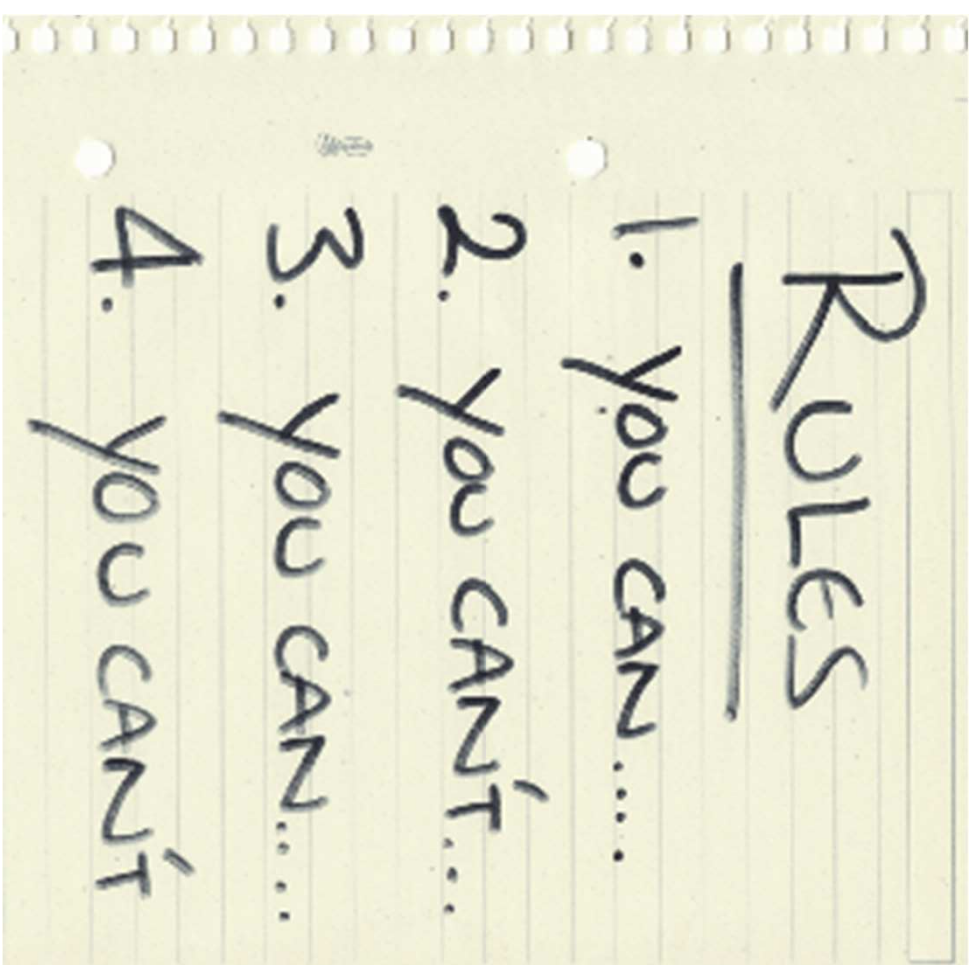 RULES
1. YOU CAN....
2. YOU CAN'T....
3. YOU CAN....
4. YOU CAN'T